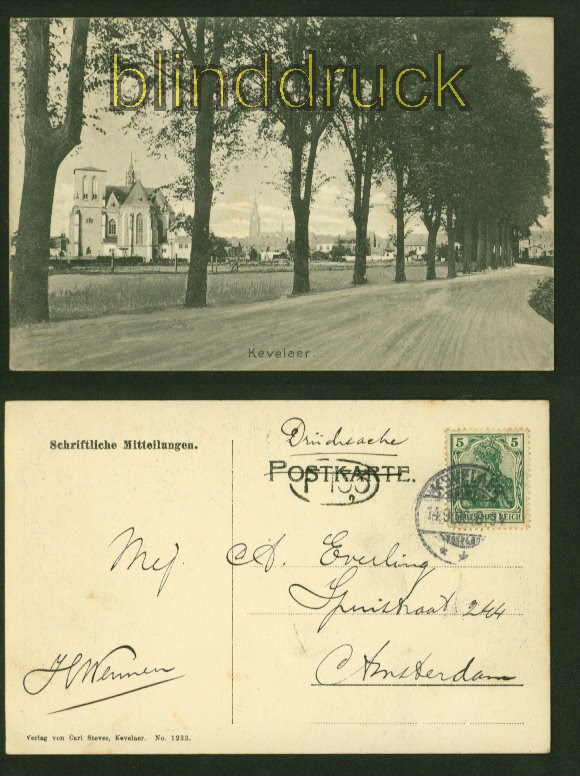 blinddruck
Kevelaer.
Schriftliche Mitteilungen.
Drucksache
POSTKARTE.
5 5
DEUTSCHES REICH
Mej. A. Everling
Spuistraat 244
Amsterdam
Verlag von Carl Steves, Kevelaer. No. 1233.